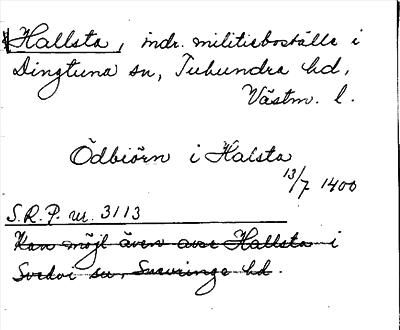 Hallsta, indr. militieboställe i
Dingtuna sn, Tuhundra hd,
Västm. l.
Ödbiörn i Halsta
13/7 1400
S.R.P. nr. 3113
Kan möjl även avse Hallsta i
Svedvi sn, Snevringe hd.